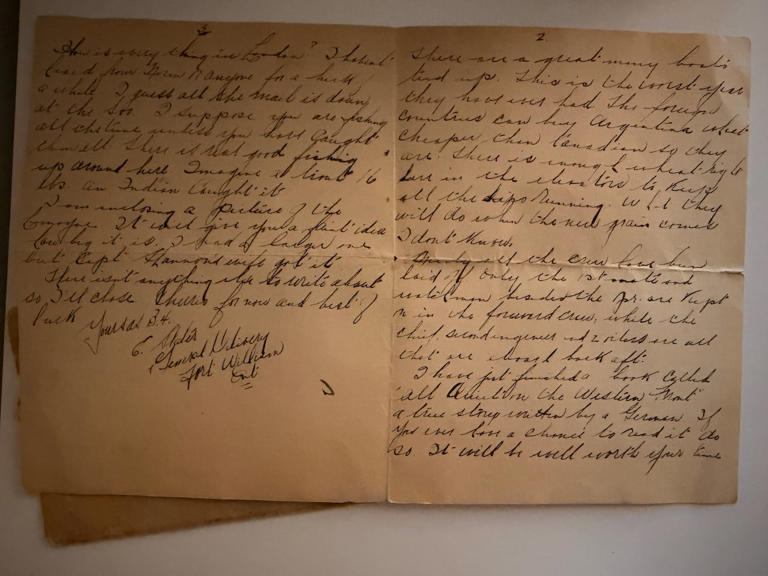 2
There are a great many boats
tied up. This is the worst year
they have ever had The foreign
countries can buy Argentina wheat
cheaper than Canadian so they
are. There is enough wheat right
here in the elevators to keep
all the ships running. What they
will do when the new grain comes
I don't know.
Nearly all the crew have been
laid off only the 1st mate and
watchman besides the are kept
on in the forward crew, while the
chief, second engineer and 2 oilers are all
that are enough back aft.
I have just finished a book called
"All Quiet on the Western Front"
a true story written by a German If
you ever have a chance to read it do
so It will be well worth your time
3
How is every thing in London? I haven't
heard from or anyone for a heck
a while I guess all the mail is down
at the Soo. I suppose you are fishing
all the time unless you have caught
them all There is real good fishing
up around here Imagine a trout 16
lbs. an Indian caught it
I am enclosing a picture of the
It will give you a faint idea
how big it is. I had a larger one
but Capt Shannons wife got it
There isn't anything else to write about
so I'll close Cheers for now and best of
luck
Yours as B.4.
E.
General Delivery
Fort William
Ont